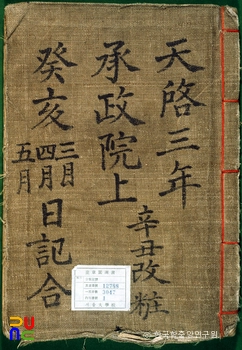 天啓三年
承政院上
癸亥
三月
四月
五月
日記合
辛丑改粧
12788
한국학중앙연구원